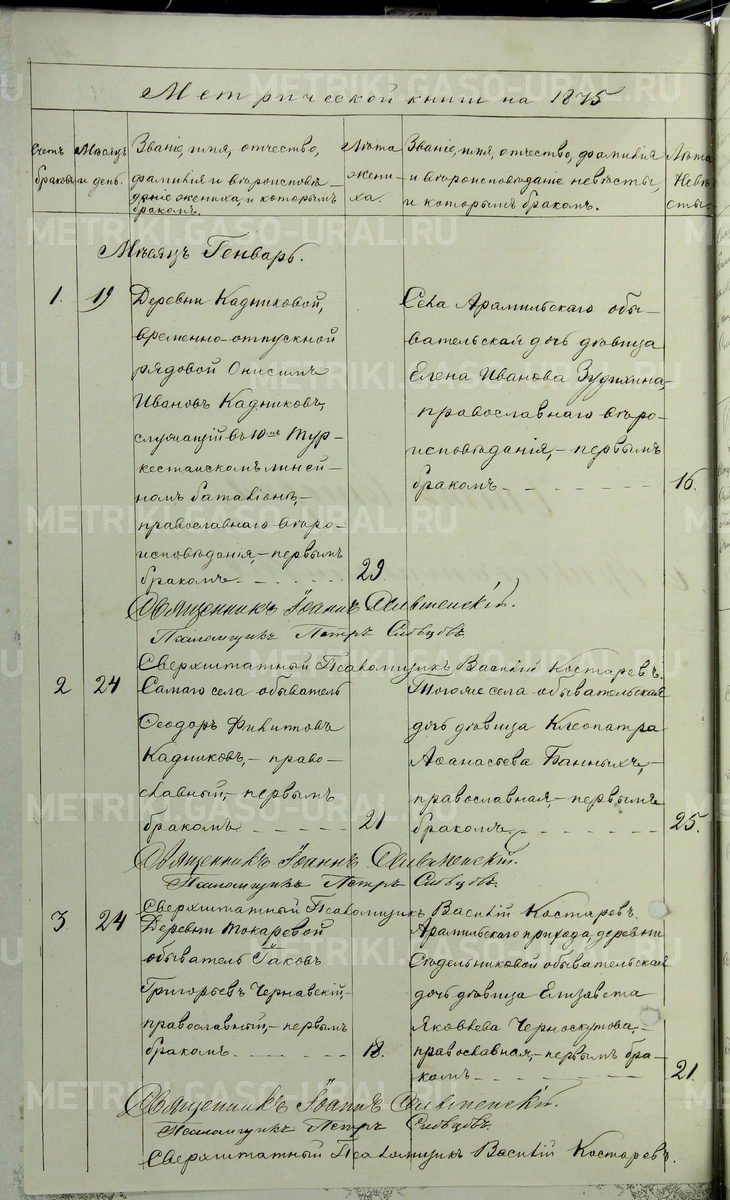 Метрической книги на 1875
Счетъ браковъ
Мѣсяцъ и день.
Званіе, имя, отчество,
фамилія и вѣроисповѣ-
даніе жениха, и которымъ
бракомъ.
Лѣта
жени-
ха.
Званіе, имя, отчество, фамилія
и вѣроисповѣданіе невѣсты,
и которымъ бракомъ.
Лѣта
Невѣ-
сты
Мѣсяцъ Генварь.
1. 19
Деревни Кадниковой,
временно-отпускной
рядовой Онисимъ
Ивановъ Кадниковъ,
служащій въ 10мъ Тур-
кестанскомъ линей-
номъ баталіонѣ,-
православнаго вѣро-
исповѣданія,- первымъ
бракомъ. 29.
Села Арамильскаго обы-
вательская дочь дѣвица
Елена Иванова Зудихина,
православнаго вѣро-
исповѣданія,- первымъ
бракомъ 16.
Священникъ Іоаннъ
Псаломщикъ Петръ Сивцовъ.
Сверхштатный Псаломщикъ Василій Костаревъ.
2 24
Самаго села обыватель
Ѳеодоръ Филитовъ
Кадниковъ,- право-
славный,- первымъ
бракомъ 21
Тогоже села обывательская
дочь дѣвица Клеопатра
Аѳанасьева Банныхъ,-
православная,- первымъ
бракомъ 25.
Священникъ Іоаннъ
Псаломщикъ Петръ Сивцовъ.
Сверхштатный Псаломщикъ Василій Костаревъ.
3 24
Деревни Токаревой
обыватель Іаковъ
Григорьевъ Чернавскій,-
православный,- первымъ
бракомъ. 18.
Арамильскаго прихода, деревни
Сѣдельниковой обывательская
дочь дѣвица Елизавета
Яковлева Черноскутова,-
православная,- первымъ бра-
комъ 21.
Священникъ Іоаннъ
Псаломщикъ Петръ Сивцовъ.
Сверхштатный Псаломщикъ Василій Костаревъ.
METRIKI.GASO-URAL.RU